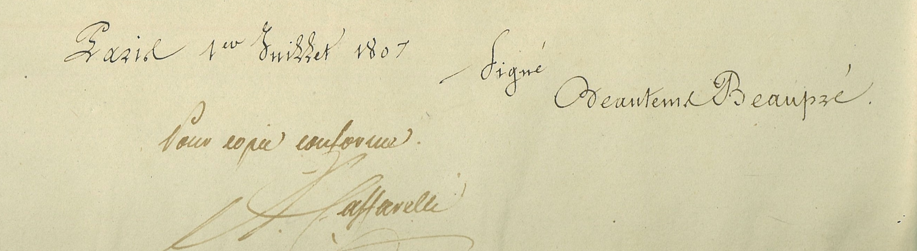 Paris 1er Juillet 1807
Signé
Beautems Beaupré.
Pour copie conforme.
Caffarelli